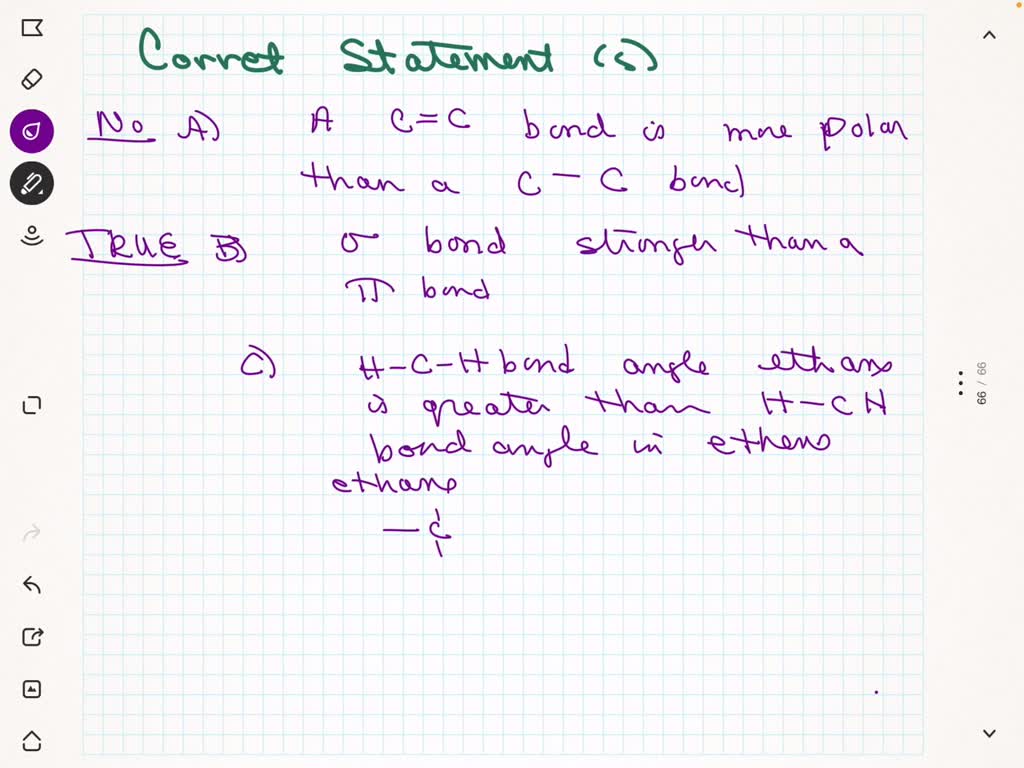 Corret Statement (s)
No A) A C=C bond is more polar
than a C-C bond
TRUE B) σ bond stronger than a
π bond
C) H-C-H bond angle ethane
is greater than H-CH
bond angle in ethene
ethane
-C
66 / 66